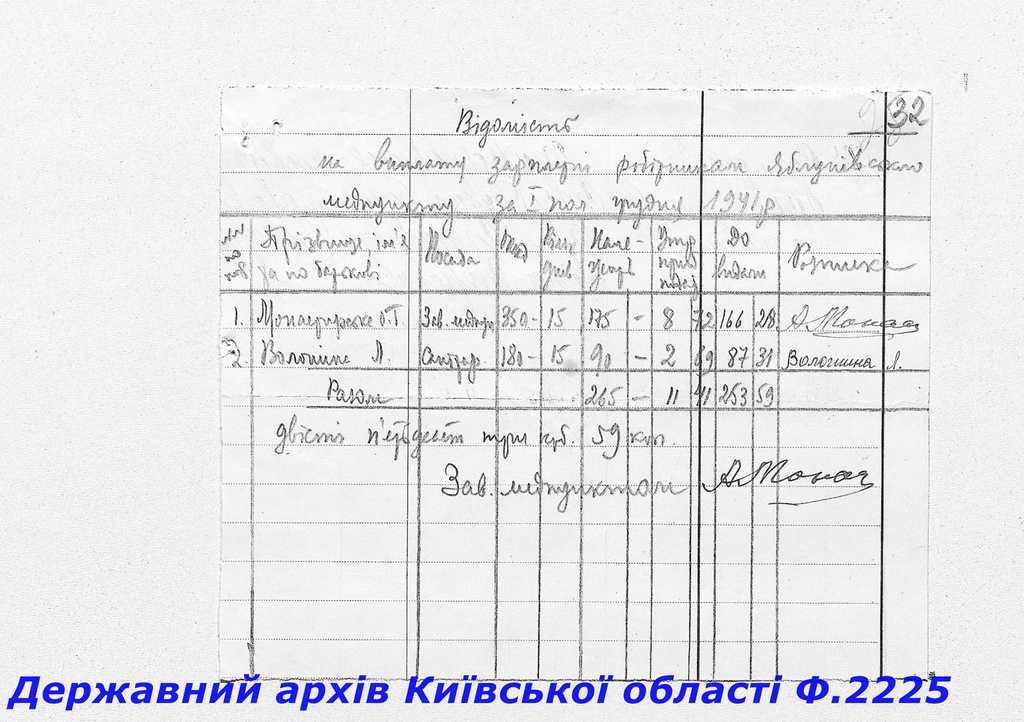 32
Відомість
на виплату зарплетні робітникам Яблунівського
медпункту за I пол. грудня 1941 р
№№ по пор Прізвище, ім'я та по батькові Посада Оклад Кільк. днів Нале-жить Утрим. приб. подат. До видачі Розписка
1. Зав. медпун 350 - 15 175 - 8 72 166 28
2 Волошина Л. Санітар. 180 - 15 90 - 2 69 87 31 Волошина Л.
Разом 265 - 11 41 253 59
двісті п'ятдесят три крб. 59 коп.
Зав. медпунктом
Державний архів Київської області Ф.2225